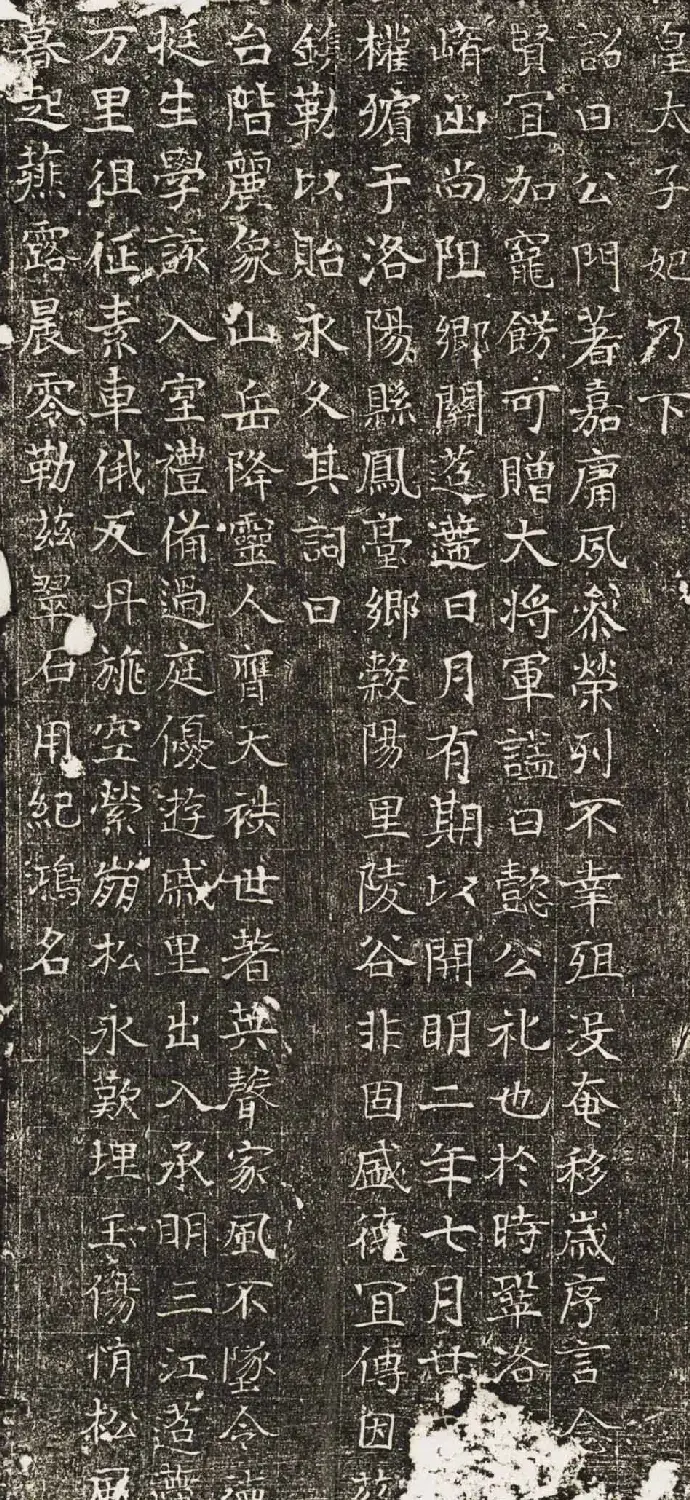 皇太子妃乃下
詔曰公門著嘉庸夙參榮列不幸殂没奄移歲序言念
賢宜加寵餝可贈大將軍謚曰懿公礼也於時鞏洛
崤函尚阻鄉關遥遰日月有期以開明二年七月廿
權殯于洛陽縣鳳臺鄉穀陽里陵谷非固盛德宜傳因茲
鐫勒以貽永久其詞曰
台階麗象山岳降靈人膺天袟世著英聲家風不墜令德
挺生學該入室禮備過庭優遊戚里出入承明三江遥
万里徂征素車俄反丹旐空縈崩松永歎埋玉傷情松
暮起薤露晨零勒茲翠石用紀鴻名